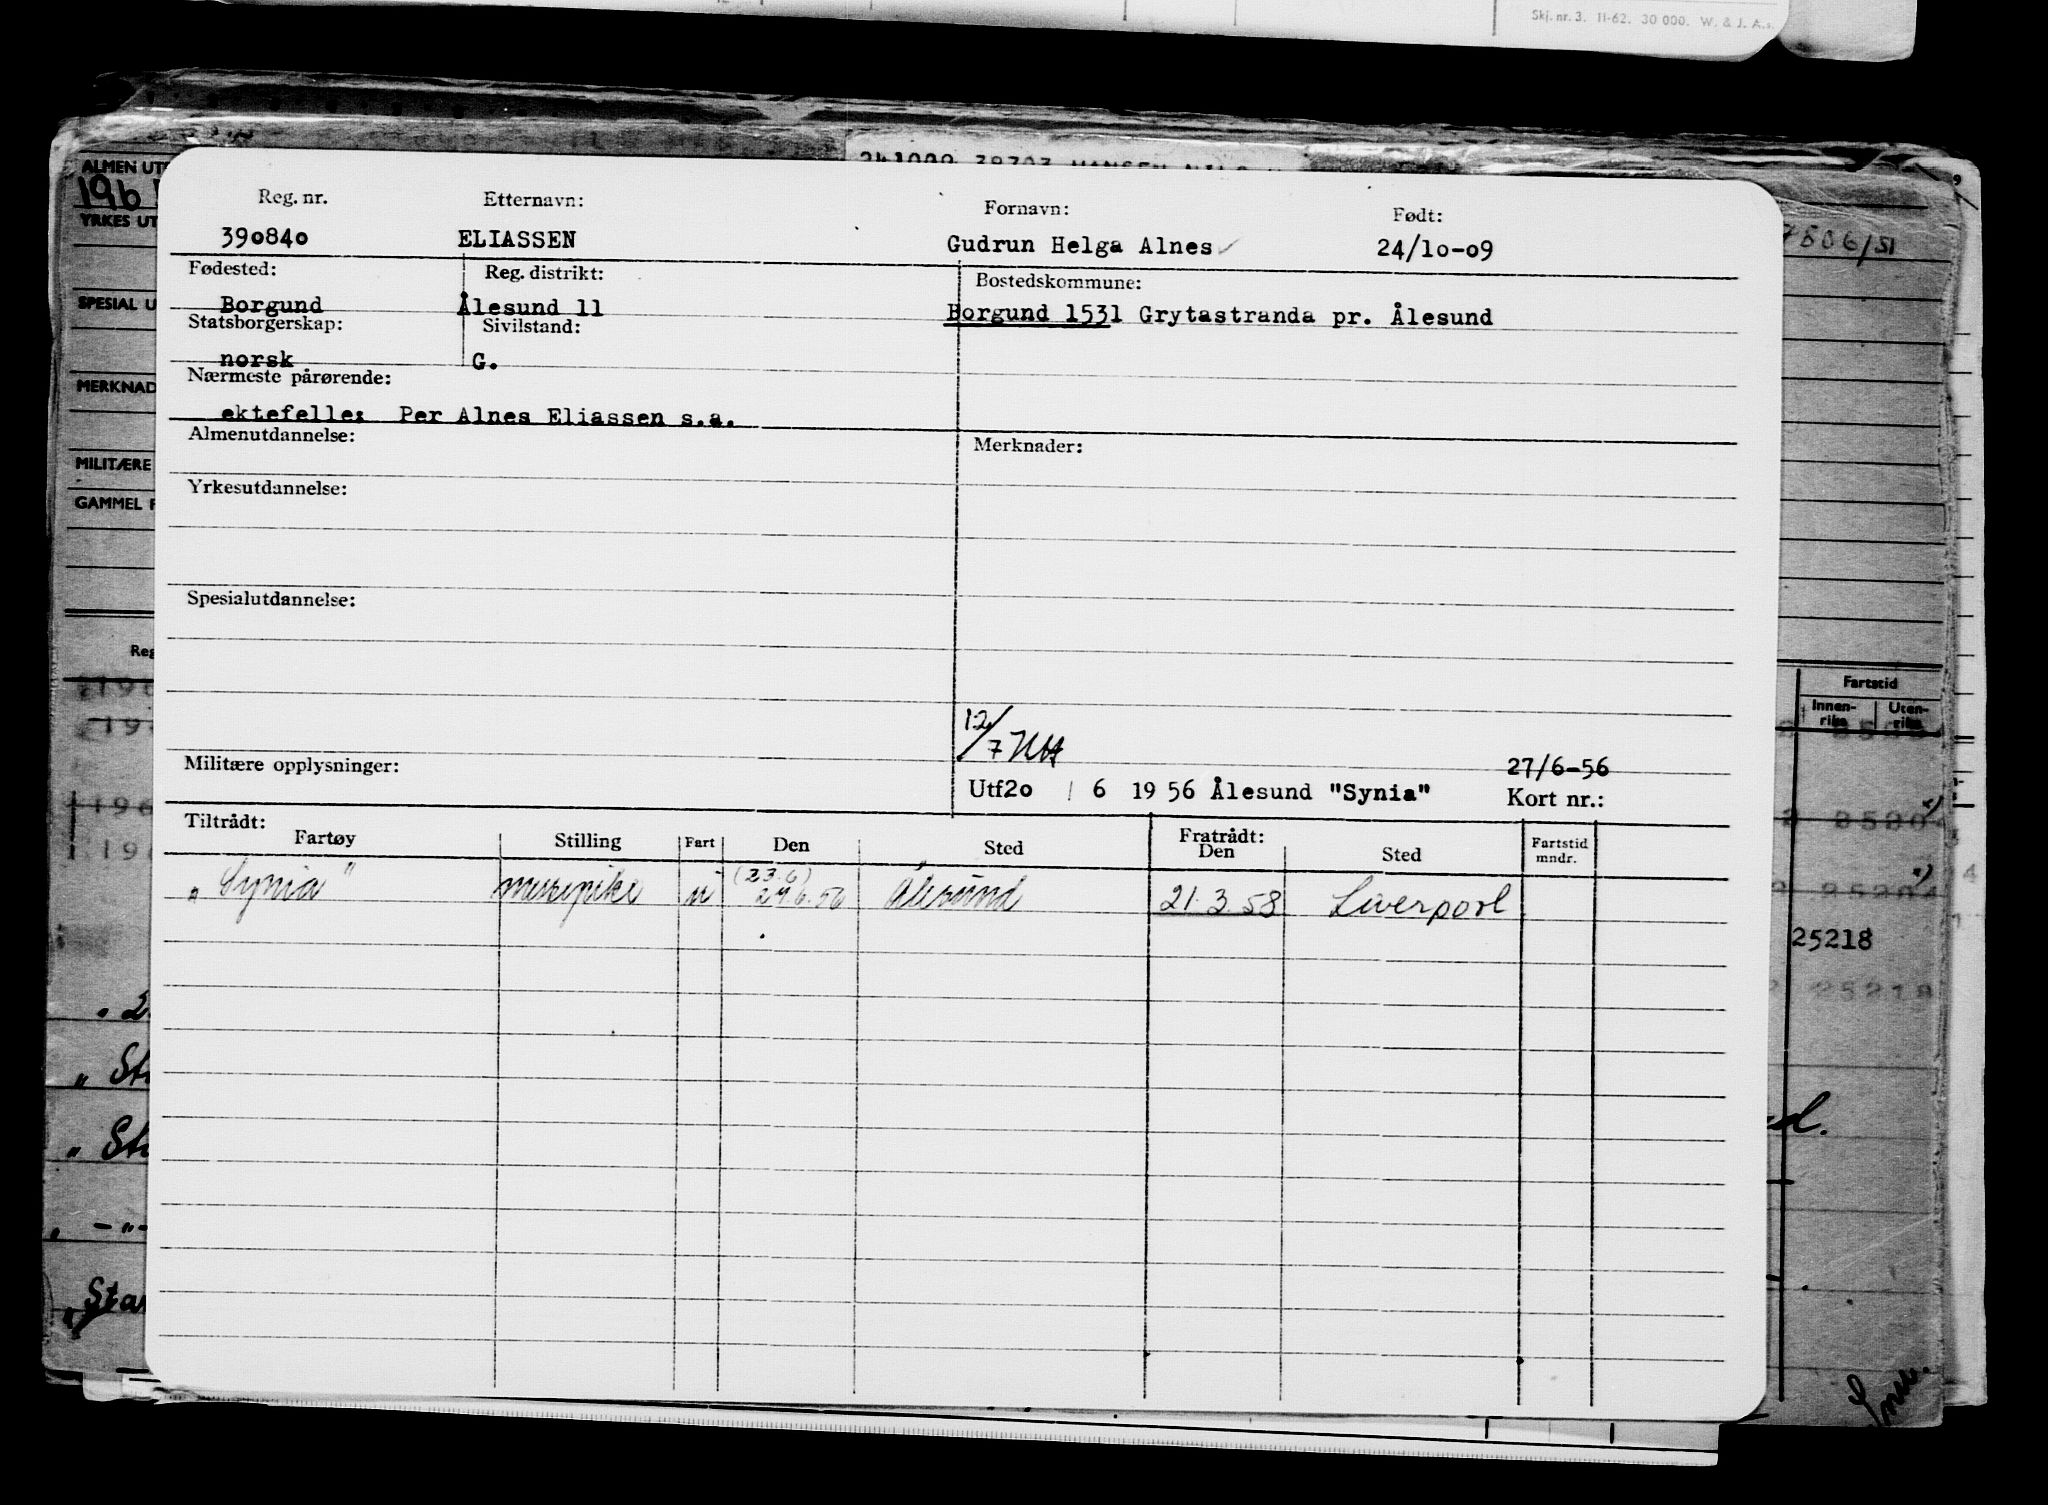 Skj. nr. 3. 11-62. 30 000. W. & J. A.s.
ALMEN UT
YRKES UT
SPESIAL U
MERKNAD
MILITÆRE
GAMMEL F
7806/51
Reg. nr. Etternavn: Fornavn: Født:
390840 ELIASSEN Gudrun Helga Alnes 24/10-09
Fødested: Reg. distrikt: Bostedskommune:
Borgund Ålesund 11 Borgund 1531 Grytastranda pr. Ålesund
Statsborgerskap: Sivilstand:
norsk G.
Nærmeste pårørende:
ektefelle: Per Alnes Eliassen s.a.
Almenutdannelse: Merknader:
Yrkesutdannelse:
Spesialutdannelse:
12/7
Militære opplysninger: 27/6-56
Utf20 / 6 1956 Ålesund "Synia" Kort nr.:
Tiltrådt: Fratrådt:
Fartøy Stilling Fart Den Sted Den Sted Fartstid mndr.
(23.6)
"Synia" messepike u 24.6.56 Ålesund 21.3.58 Liverpool
Fartstid
Innen-riks Uten-riks
25218
25218